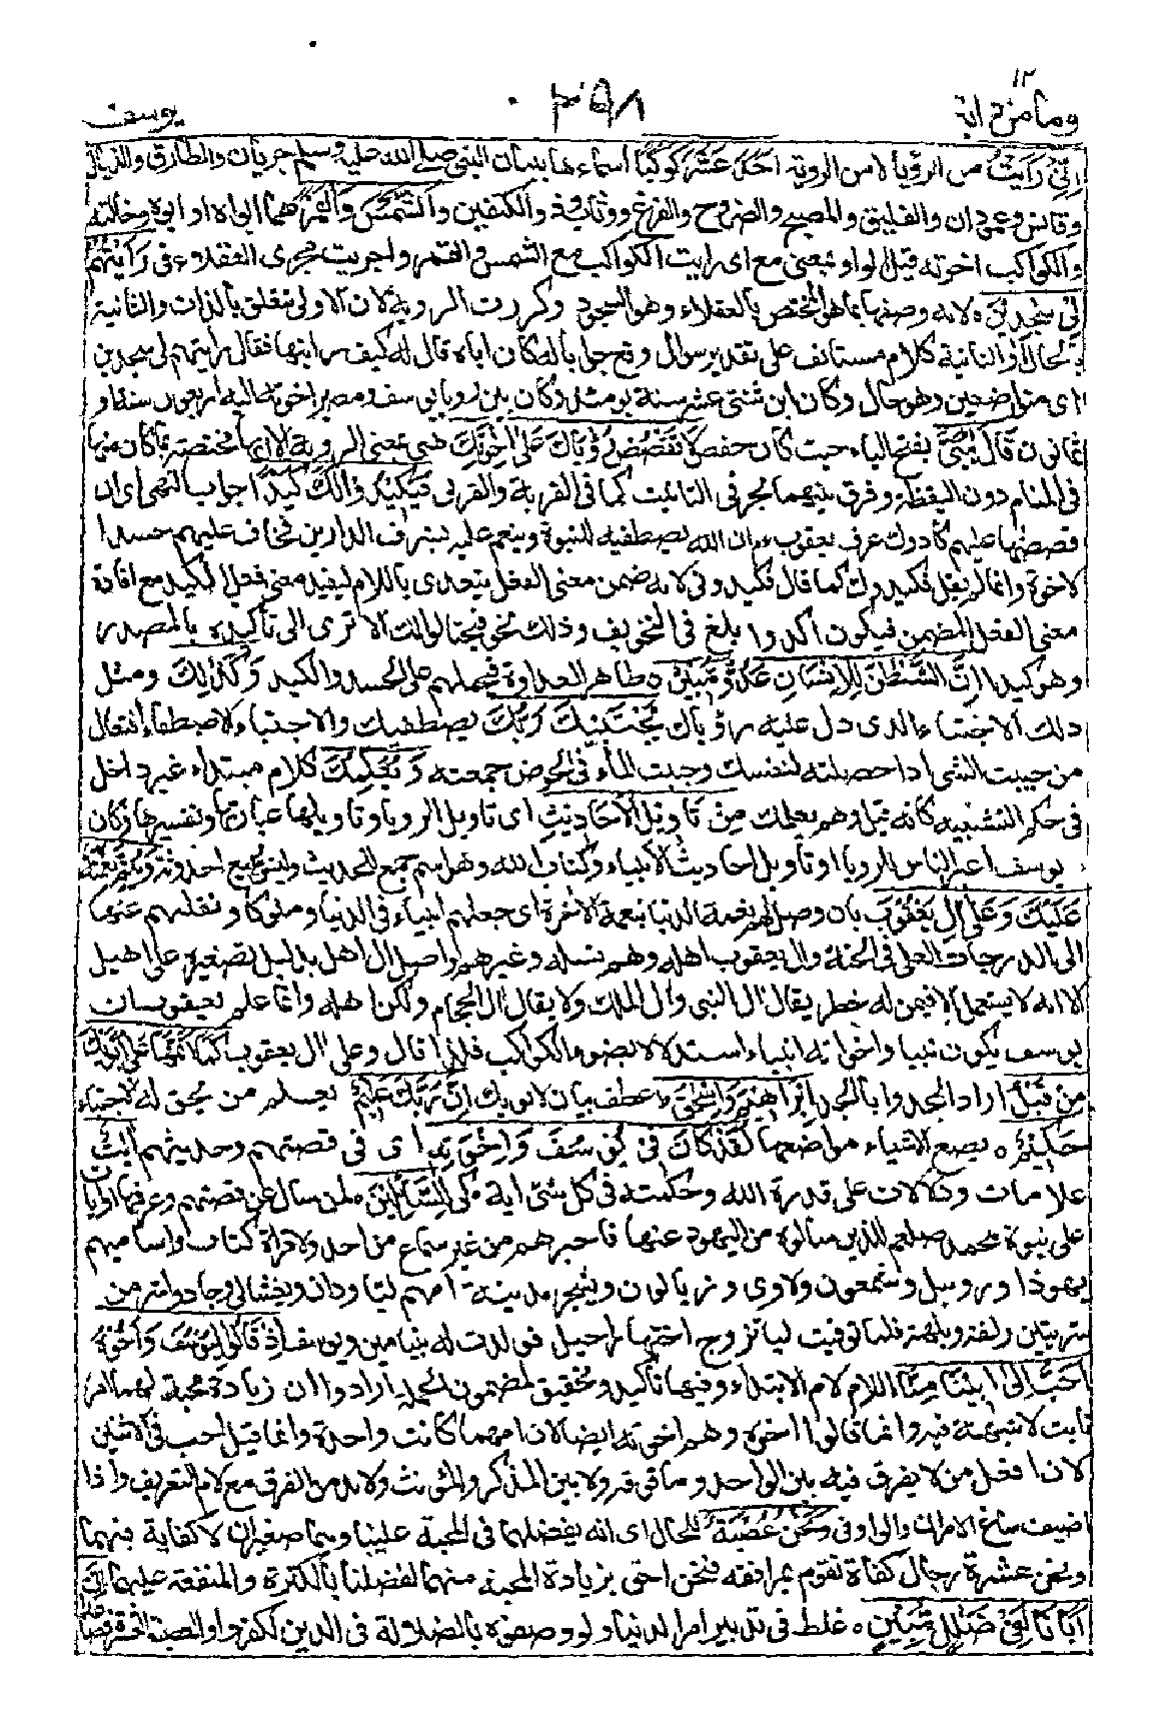 ١٢
وما من دابة ٣٩٨ يوسف
اِنِّيْ رَاَيْتُ من الرؤيا لا من الروية اَحَدَ عَشَرَ كَوْكَبًا اسماءها ببيان النبي صلى الله عليه وسلم جريان والطارق والذيال
وقابس وعمودان والفليق والمصبح والضروح والفرغ ووثاب وذو الكتفين وَالشَّمْسَ وَالْقَمَرَ هما ابواه او ابوه وخالته
والكواكب اخوته قيل الواو بمعنى مع اى رايت الكواكب مع الشمس والقمر واجريت مجرى العقلاء فى رَاَيْتُهُمْ
لِيْ سٰجِدِيْنَ ٥ لانه وصفها بما هو المختص بالعقلاء وهو السجود وكررت الروية لان الاولى تتعلق بالذات والثانية
بالحال او الثانية كلام مستانف على تقدير سوال وقع جوابا له كان اباه قال له كيف رايتها فقال رايتهم لى سجدين
اى متواضعين وهو حال وكان ابن ثنتى عشر سنة يومئذ وكان بين رويا يوسف ومصير اخوته اليه اربعون سنة او
ثمانون قَالَ يٰبُنَيَّ بفتح الياء حيث كان حفص لَا تَقْصُصْ رُؤْيَاكَ عَلٰى اِخْوَتِكَ هى بمعنى الروية الا انها مختصة بما كان منها
فى المنام دون اليقظة وفرق بينهما بحرفى التانيث كما فى القربة والقربى فَيَكِيْدُوْا لَكَ كَيْدًا جواب النهى اى ان
قصصتها عليهم كادوك عرف يعقوب ان الله يصطفيه للنبوة وينعم عليه بشرف الدارين فخاف عليهم حسد ا
لاخوة وانما لم يقل فيكيدوك كما قال فكيدونى لانه ضمن معنى الفعل يتعدى باللام ليفيد معنى فعل الكيد مع افادة
معنى الفعل المضمن فيكون اكد وابلغ فى التخويف وذلك نحو فيحتالوا لك الا ترى الى تأكيده بالمصدر
وهو كيدا اِنَّ الشَّيْطٰنَ لِلْاِنْسَانِ عَدُوٌّ مُّبِيْنٌ ٥ ظاهر العداوة فيحملهم على الحسد والكيد وَكَذٰلِكَ ومثل
ذلك الاجتباء الذى دل عليه رؤياك يَجْتَبِيْكَ رَبُّكَ يصطفيك والاجتباء الاصطفاء افتعال
من جبيت الشئ اذا حصلته لنفسك وجبيت الماء فى الحوض جمعته وَيُعَلِّمُكَ كلام مبتداء غير داخل
فى حكم التشبيه كانه قيل وهو يعلمك مِنْ تَاْوِيْلِ الْاَحَادِيْثِ اى تاويل الرويا وتاويلها عبارتها وتفسيرها وكان
يوسف اعبر الناس للرويا او تاويل احاديث الانبياء وكتاب الله وهو اسم جمع للحديث وليس بجمع احدوثة وَيُتِمُّ نِعْمَتَهٗ
عَلَيْكَ وَعَلٰى اٰلِ يَعْقُوْبَ بان وصل لهم نعمة الدنيا بنعمة الاخرة اى جعلهم انبياء فى الدنيا وملوكا ونقلهم عنها
الى الدرجات العلى فى الجنة وال يعقوب اهله وهم نسله وغيرهم واصل ال اهل بدليل تصغيره على اهيل
الا انه لا يستعمل الا فيمن له خطر يقال ال النبى وال الملك ولا يقال ال الحجام ولكن اهله وانما علم يعقوب ان
يوسف يكون نبيا واخوته انبياء استدلالا بضوء الكواكب فلذا قال وعلى ال يعقوب كَمَا اَتَمَّهَا عَلٰى اَبَوَيْكَ
مِنْ قَبْلُ اراد الجد وابا الجد اِبْرٰهِيْمَ وَاِسْحٰقَ ٥ عطف بيان لابويك اِنَّ رَبَّكَ عَلِيْمٌ يعلم من يحق له الاجتباء
حَكِيْمٌ ٥ يضع الاشياء مواضعها لَقَدْ كَانَ فِيْ يُوْسُفَ وَاِخْوَتِهٖ اى فى قصتهم وحديثهم اٰيٰتٌ
علامات ودلالات على قدرة الله وحكمته فى كل شئ اية مكى لِلسَّآئِلِيْنَ ٥ لمن سال عن قصتهم وعرفها او ايات
على نبوة محمد صلعم للذين سالوه من اليهود عنها فاخبرهم من غير سماع من احد ولا قراة كتاب واساميهم
يهوذا وروبيل وشمعون ولاوى وزبالون ويشجر مدينة امهم ليا ودان ويفثالى وجاد واشر من
سريتين زلفة وبلهة فلما توفيت ليا تزوج اختها راحيل فولدت له بنيامين ويوسف اِذْ قَالُوْا لَيُوْسُفُ وَاَخُوْهُ
اَحَبُّ اِلٰى اَبِيْنَا مِنَّا اللام لام الابتداء وفيها تأكيد وتحقيق لمضمون الجملة ارادوا ان زيادة محبة لهما امر
ثابت لا شبهة فيه وانما قالوا اخوه وهم اخوته ايضا لان امهما كانت واحدة وانما قيل احب فى الاثنين
لان افعل من لا يفرق فيه بين الواحد وما فوقه ولا بين المذكر والمؤنث ولا بد من الفرق مع لام التعريف واذا
اضيف ساغ الامران والواو فى وَنَحْنُ عُصْبَةٌ للحال اى انه يفضلهما فى المحبة علينا وهما صغيران لا كفاية فيهما
ونحن عشرة رجال كفاة نقوم بمرافقه فنحن احق بزيادة المحبة منهما لفضلنا بالكثرة والمنفعة عليهما اِنَّ
اَبَانَا لَفِيْ ضَلٰلٍ مُّبِيْنٍ ٥ غلط فى تدبير امر الدنيا ولو وصفوه بالضلالة فى الدين لكفروا والعصبة العشرة فصاعدا